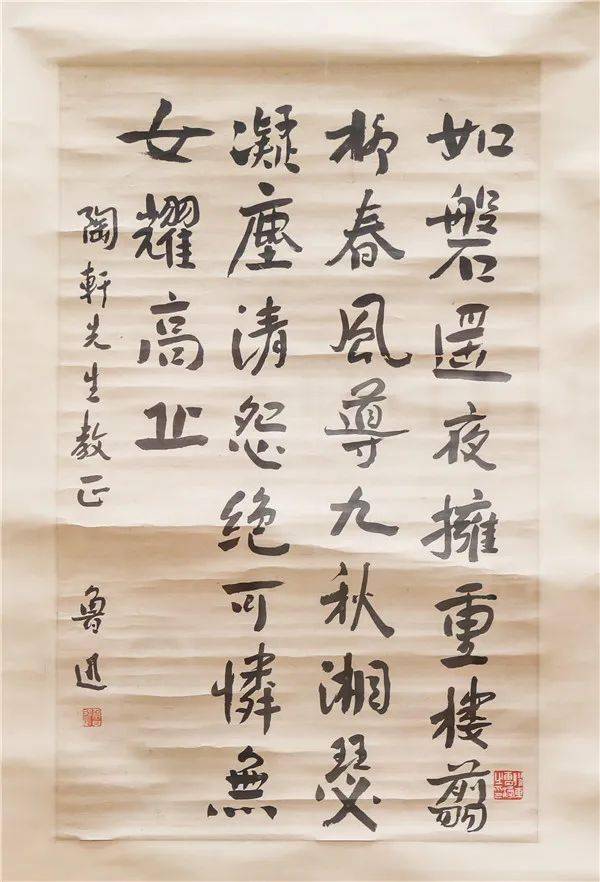 如磐遥夜擁重樓翦
柳春風導九秋湘瑟
凝塵清怨絶可憐無
女耀高丘
陶軒先生教正
魯迅